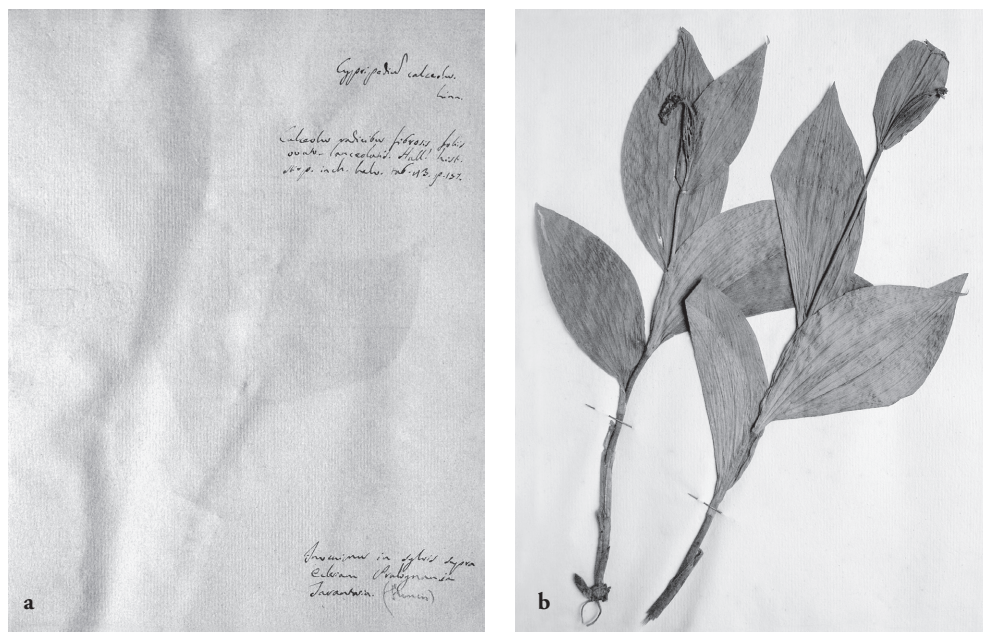 Cypripediũ calceolus.
Linn.
Calceolus radicibus fibrosis foliis
ovato-lanceolatis. Hall. hist.
stirp. ind. helv. tab. 43. p. 157.
Invenimus in sylvis supra
Pralognania
Tarantasia.
a
b